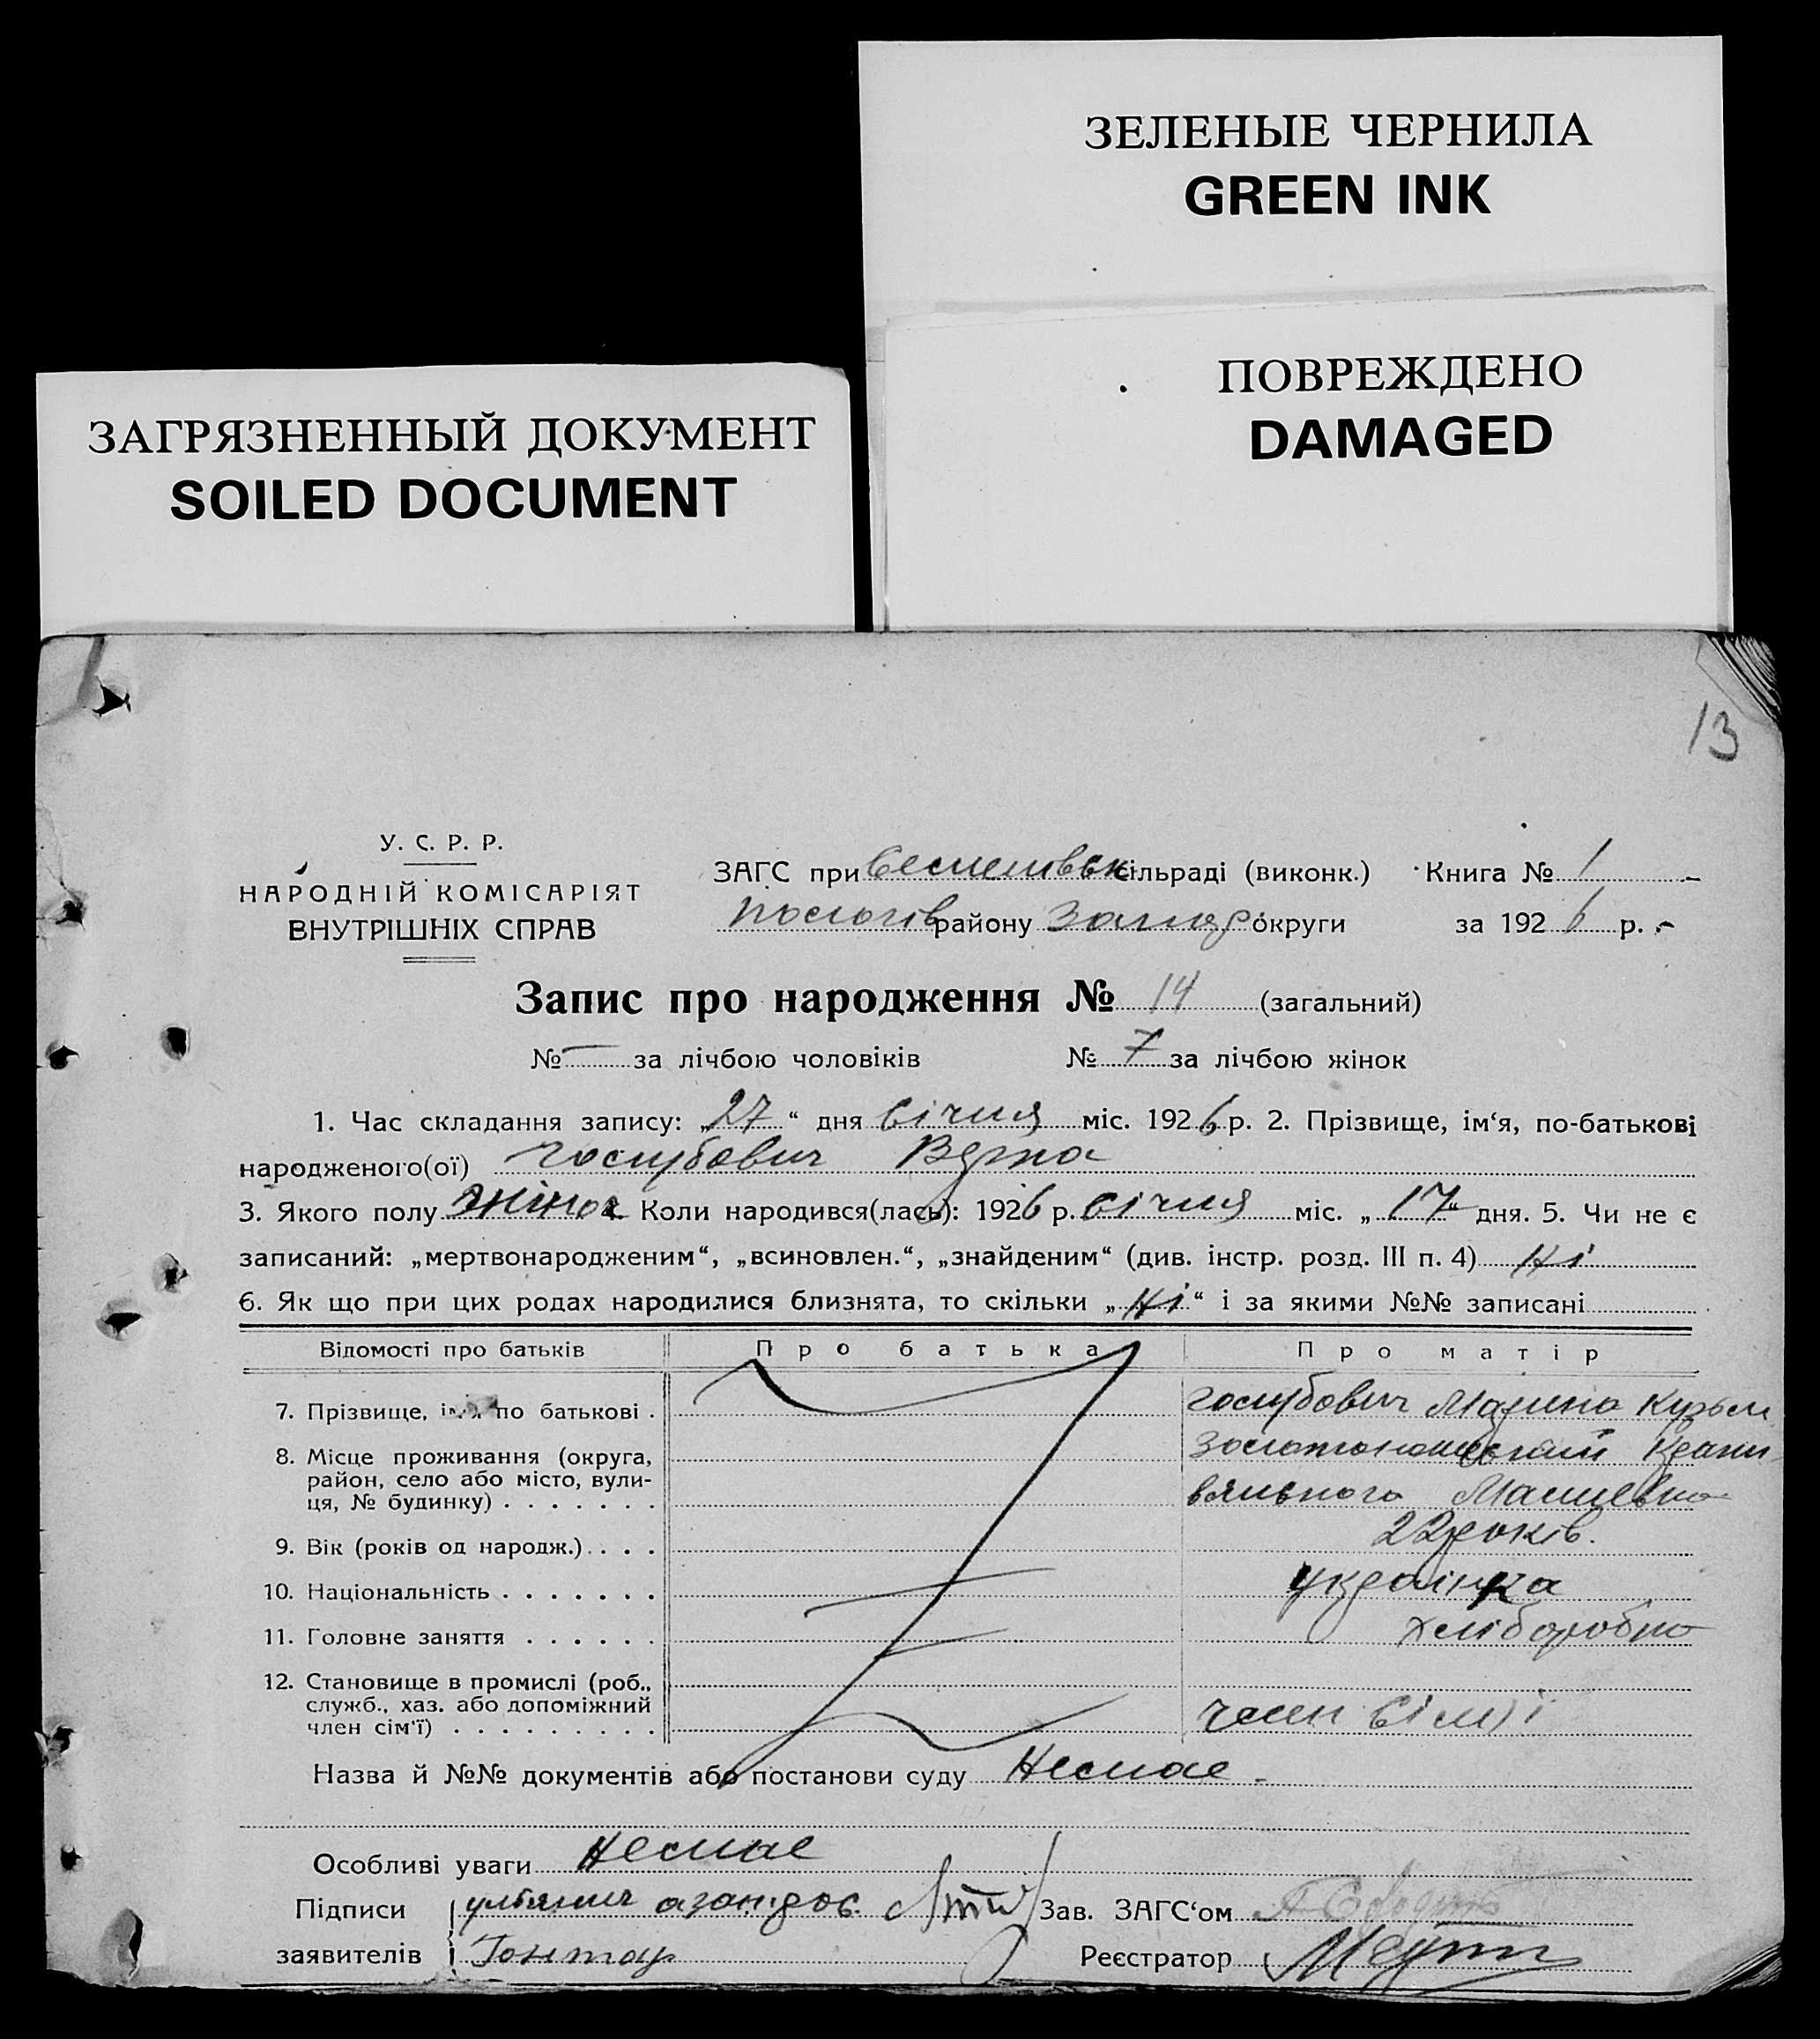 ЗЕЛЕНЫЕ ЧЕРНИЛА
GREEN INK
ПОВРЕЖДЕНО
DAMAGED
ЗАГРЯЗНЕННЫЙ ДОКУМЕНТ
SOILED DOCUMENT
13
У. С. Р. Р.
НАРОДНІЙ КОМІСАРІЯТ
ВНУТРІШНІХ СПРАВ
ЗАГС при сільраді (виконк.) Книга № 1
Пологів району Запор округи за 1926 р.
Запис про народження № 14 (загальний)
№ — за лічбою чоловіків № 7 за лічбою жінок
1. Час складання запису: „27“ дня січня міс. 1926 р. 2. Прізвище, ім‘я, по-батькові
народженого(ої) Голубович Вера
3. Якого полу жіноч 4. Коли народився(лась): 1926 р. січня міс. „17“ дня. 5. Чи не є
записаний: „мертвонародженим“, „всиновлен.“, „знайденим“ (див. інстр. розд. III п. 4) Ні
6. Як що при цих родах народилися близнята, то скільки „Ні“ і за якими №№ записані
Відомості про батьків Про батька Про матір
7. Прізвище, ім‘я по батькові . Голубович Марина Кузьм
8. Місце проживання (округа, Золотоношський Крапи-
район, село або місто, вули-
ця, № будинку) . . . . . . .
9. Вік (років од народж.) . . . . 22 років.
10. Національність . . . . . . . українка
11. Головне заняття . . . . . . хліборобка
12. Становище в промислі (роб.,
служб., хаз. або допоміжний
член сім‘ї) . . . . . . . . . член сім'ї
Назва й №№ документів або постанови суду Немає.
Особливі уваги Немає
Підписи Зав. ЗАГС‘ом
заявителів Гонтар Реєстратор